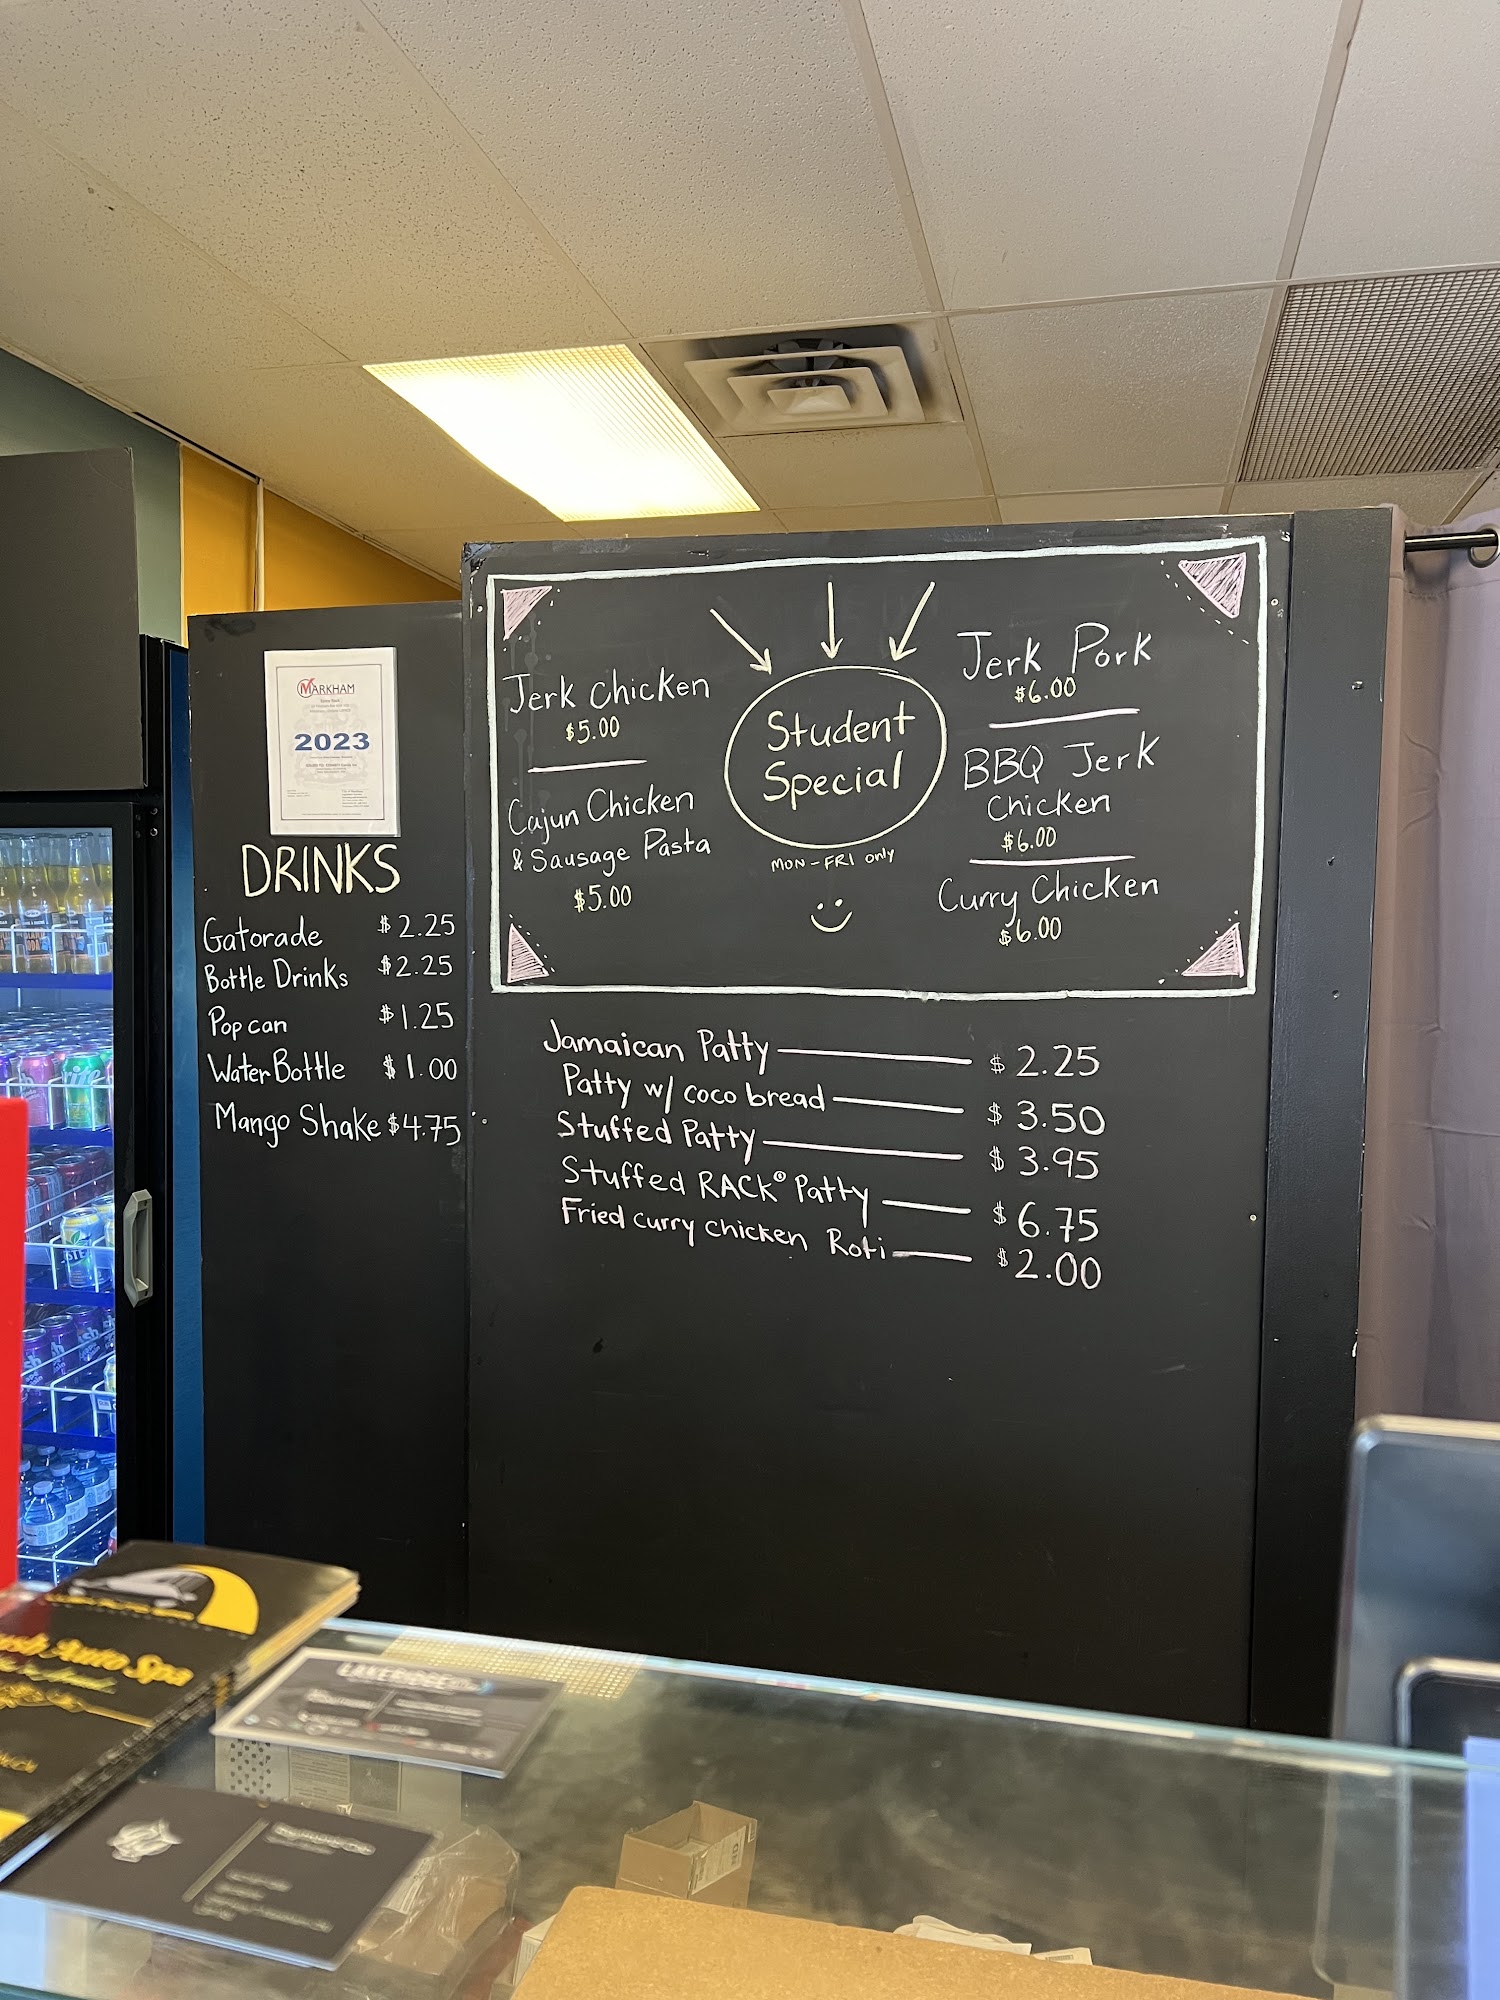 MARKHAM
2023
DRINKS
Gatorade $2.25
Bottle Drinks $2.25
Pop can $1.25
Water Bottle $1.00
Mango Shake $4.75
Jerk Chicken
$5.00
Cajun Chicken
& Sausage Pasta
$5.00
Student
Special
MON-FRI only
Jerk Pork
$6.00
BBQ Jerk
Chicken
$6.00
Curry Chicken
$6.00
Jamaican Patty $2.25
Patty w/ coco bread $3.50
Stuffed Patty $3.95
Stuffed RACK® Patty $6.75
Fried curry chicken Roti $2.00
Auto Spa
LAKERIDGE